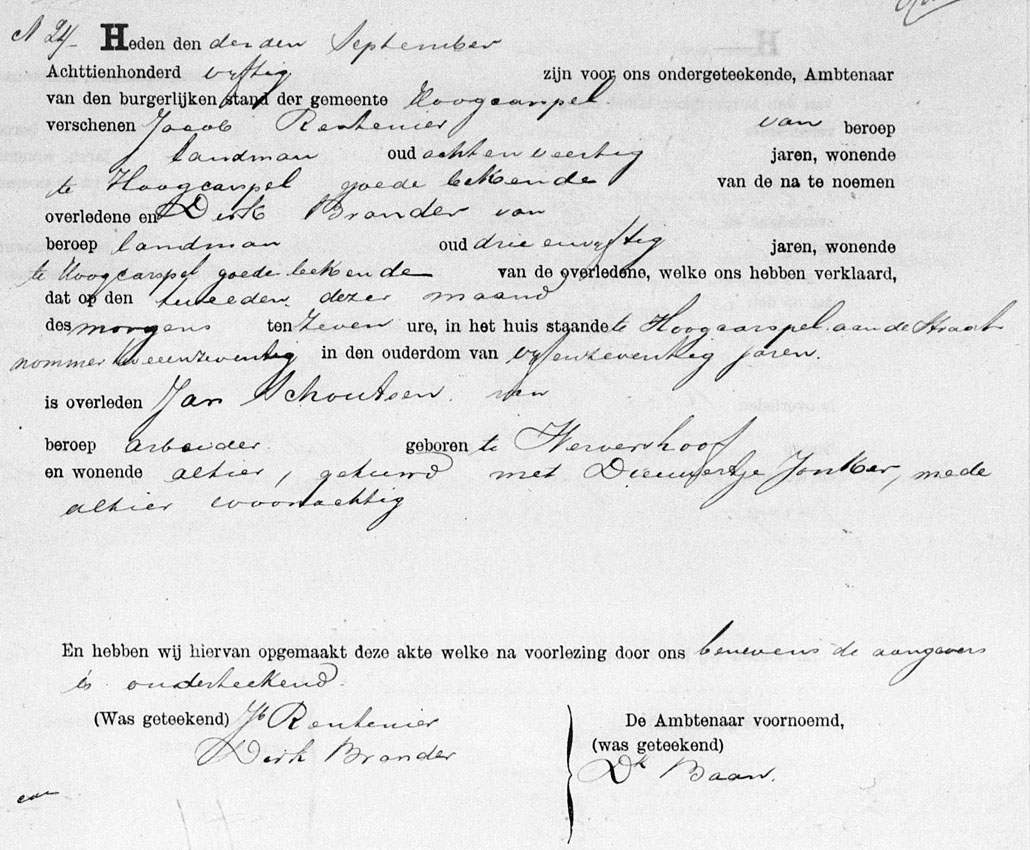 N 24. Heden den derden September
Achttienhonderd vyftig zijn voor ons ondergeteekende, Ambtenaar
van den burgerlijken stand der gemeente Hoogcarspel
verschenen Jacob Rentenier van beroep
landman oud acht en veertig jaren, wonende
te Hoogcarspel goede bekende van de na te noemen
overledene en Dirk Brander van
beroep landman oud drie en vyftig jaren, wonende
te Hoogcarspel goede bekende van de overledene, welke ons hebben verklaard,
dat op den tweeden dezer maand
des morgens ten zeven ure, in het huis staande te Hoogcarspel aan de Straat
nommer tweeenzeventig in den ouderdom van vyfenzeventig jaren.
is overleden Jan Schoutsen van
beroep arbeider. geboren te Wervershoof
en wonende alhier, gehuwd met Dieuwertje Jonker, mede
alhier woonachtig
En hebben wij hiervan opgemaakt deze akte welke na voorlezing door ons benevens de aangevers
is onderteekend.
(Was geteekend) Jb Rentenier De Ambtenaar voornoemd,
Dirk Brander (was geteekend)
Dk Baan.